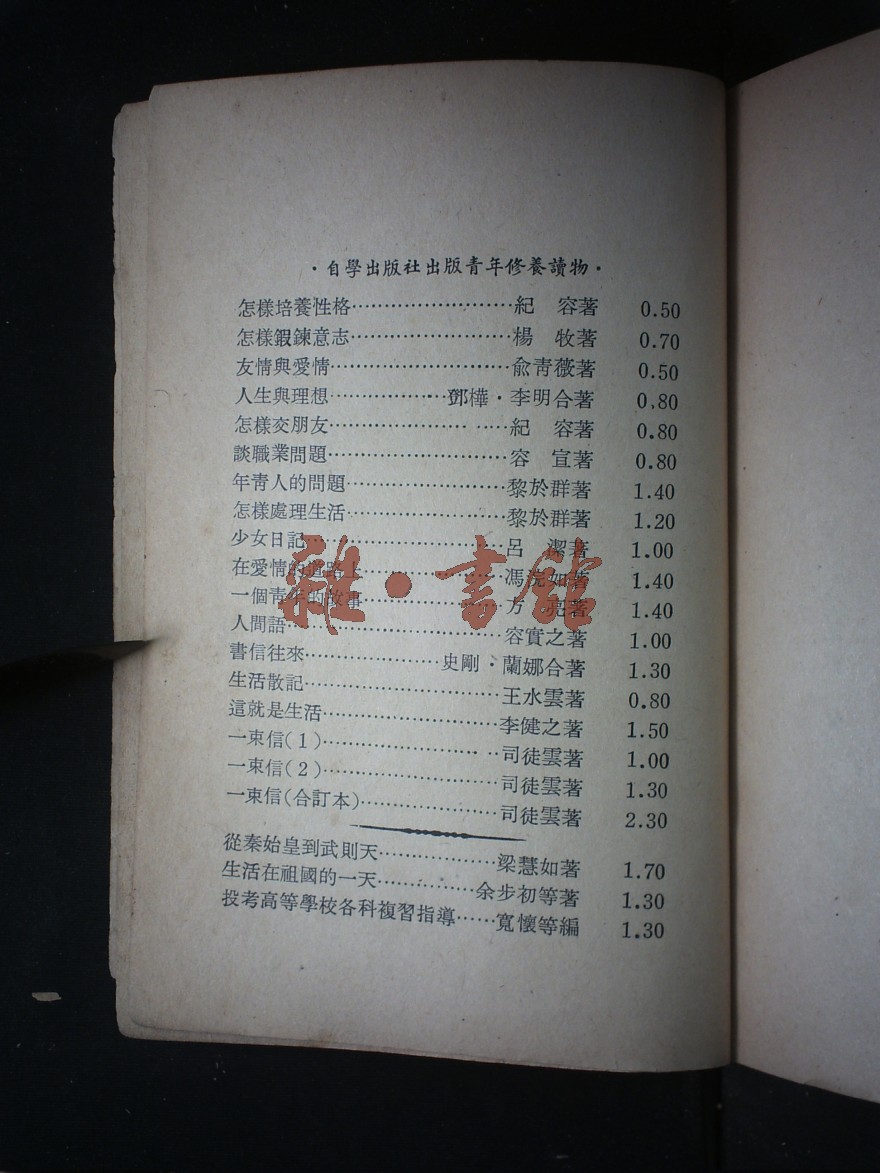 ·自學出版社出版青年修養讀物·
怎樣培養性格……………………紀　容著 0.50
怎樣鍜鍊意志……………………楊　牧著 0.70
友情與愛情………………………俞靑薇著 0.50
人生與理想………………鄧樺·李明合著 0.80
怎樣交朋友…………………… ……紀　容著 0.80
談職業問題………………………容　宣著 0.80
年靑人的問題……………………黎於群著 1.40
怎樣處理生活……………………黎於群著 1.20
少女日記…………………………呂　潔著 1.00
在愛情的道路上…………………馮浣如著 1.40
一個靑年的故事…………………方　亮著 1.40
人間語……………………………容實之著 1.00
書信往來…………………史剛·蘭娜合著 1.30
生活散記…………………………王水雲著 0.80
這就是生活………………………李健之著 1.50
一束信(1)………………… ··司徒雲著 1.00
一束信(2)………………………司徒雲著 1.30
一束信(合訂本)…………………司徒雲著 2.30
從秦始皇到武則天………………梁慧如著 1.70
生活在祖國的一天……………余步初等著 1.30
投考高等學校各科複習指導……寬懷等編 1.30
雜·書館